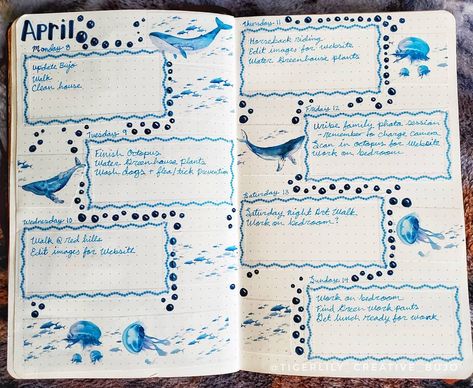 April
Monday 8
update Bujo
Walk
Clean house
Tuesday 9
Finish Octopus
Water Greenhouse plants
Wash dogs + flea/tick prevention
Wednesday 10
Walk @ Red hills
Edit images for Website
Thursday 11
Horseback riding
Edit images for website
Water Greenhouse plants
Friday 12
Wribe family photo session
- Remember to charge camera
Scan in octopus for website
Work on bedroom
Saturday 13
Saturday Night Art Walk
Work on Bedroom?
Sunday 14
Work on bedroom
Find Green work pants
Get lunch ready for work
@TIGERLILY_CREATIVE_BUJO